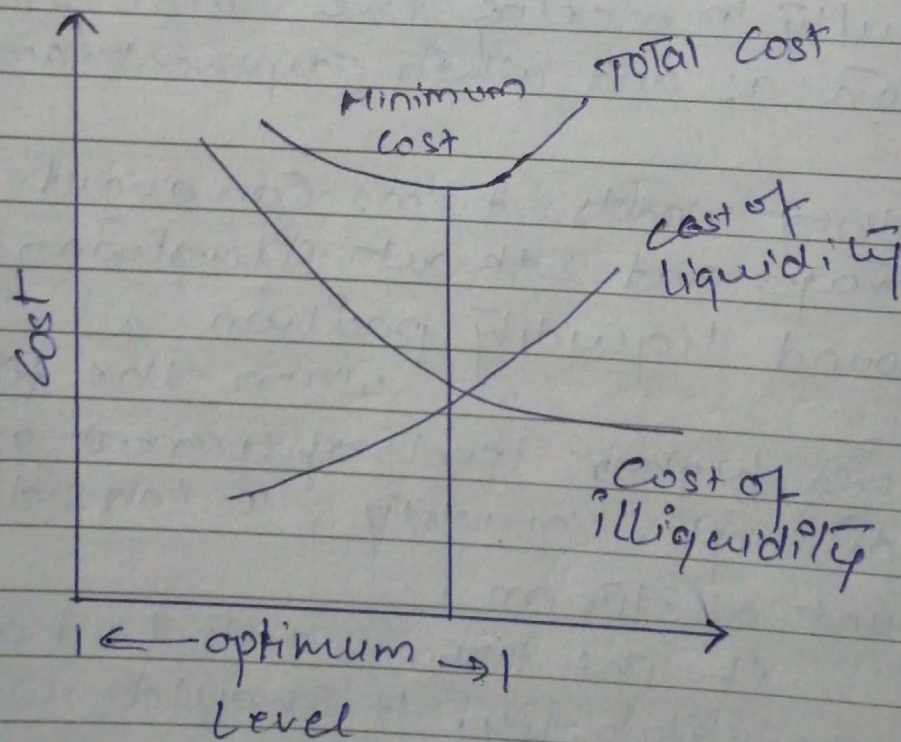 Total Cost
Minimum
Cost
Cost of
liquidity
Cost
Cost of
illiquidity
optimum
Level